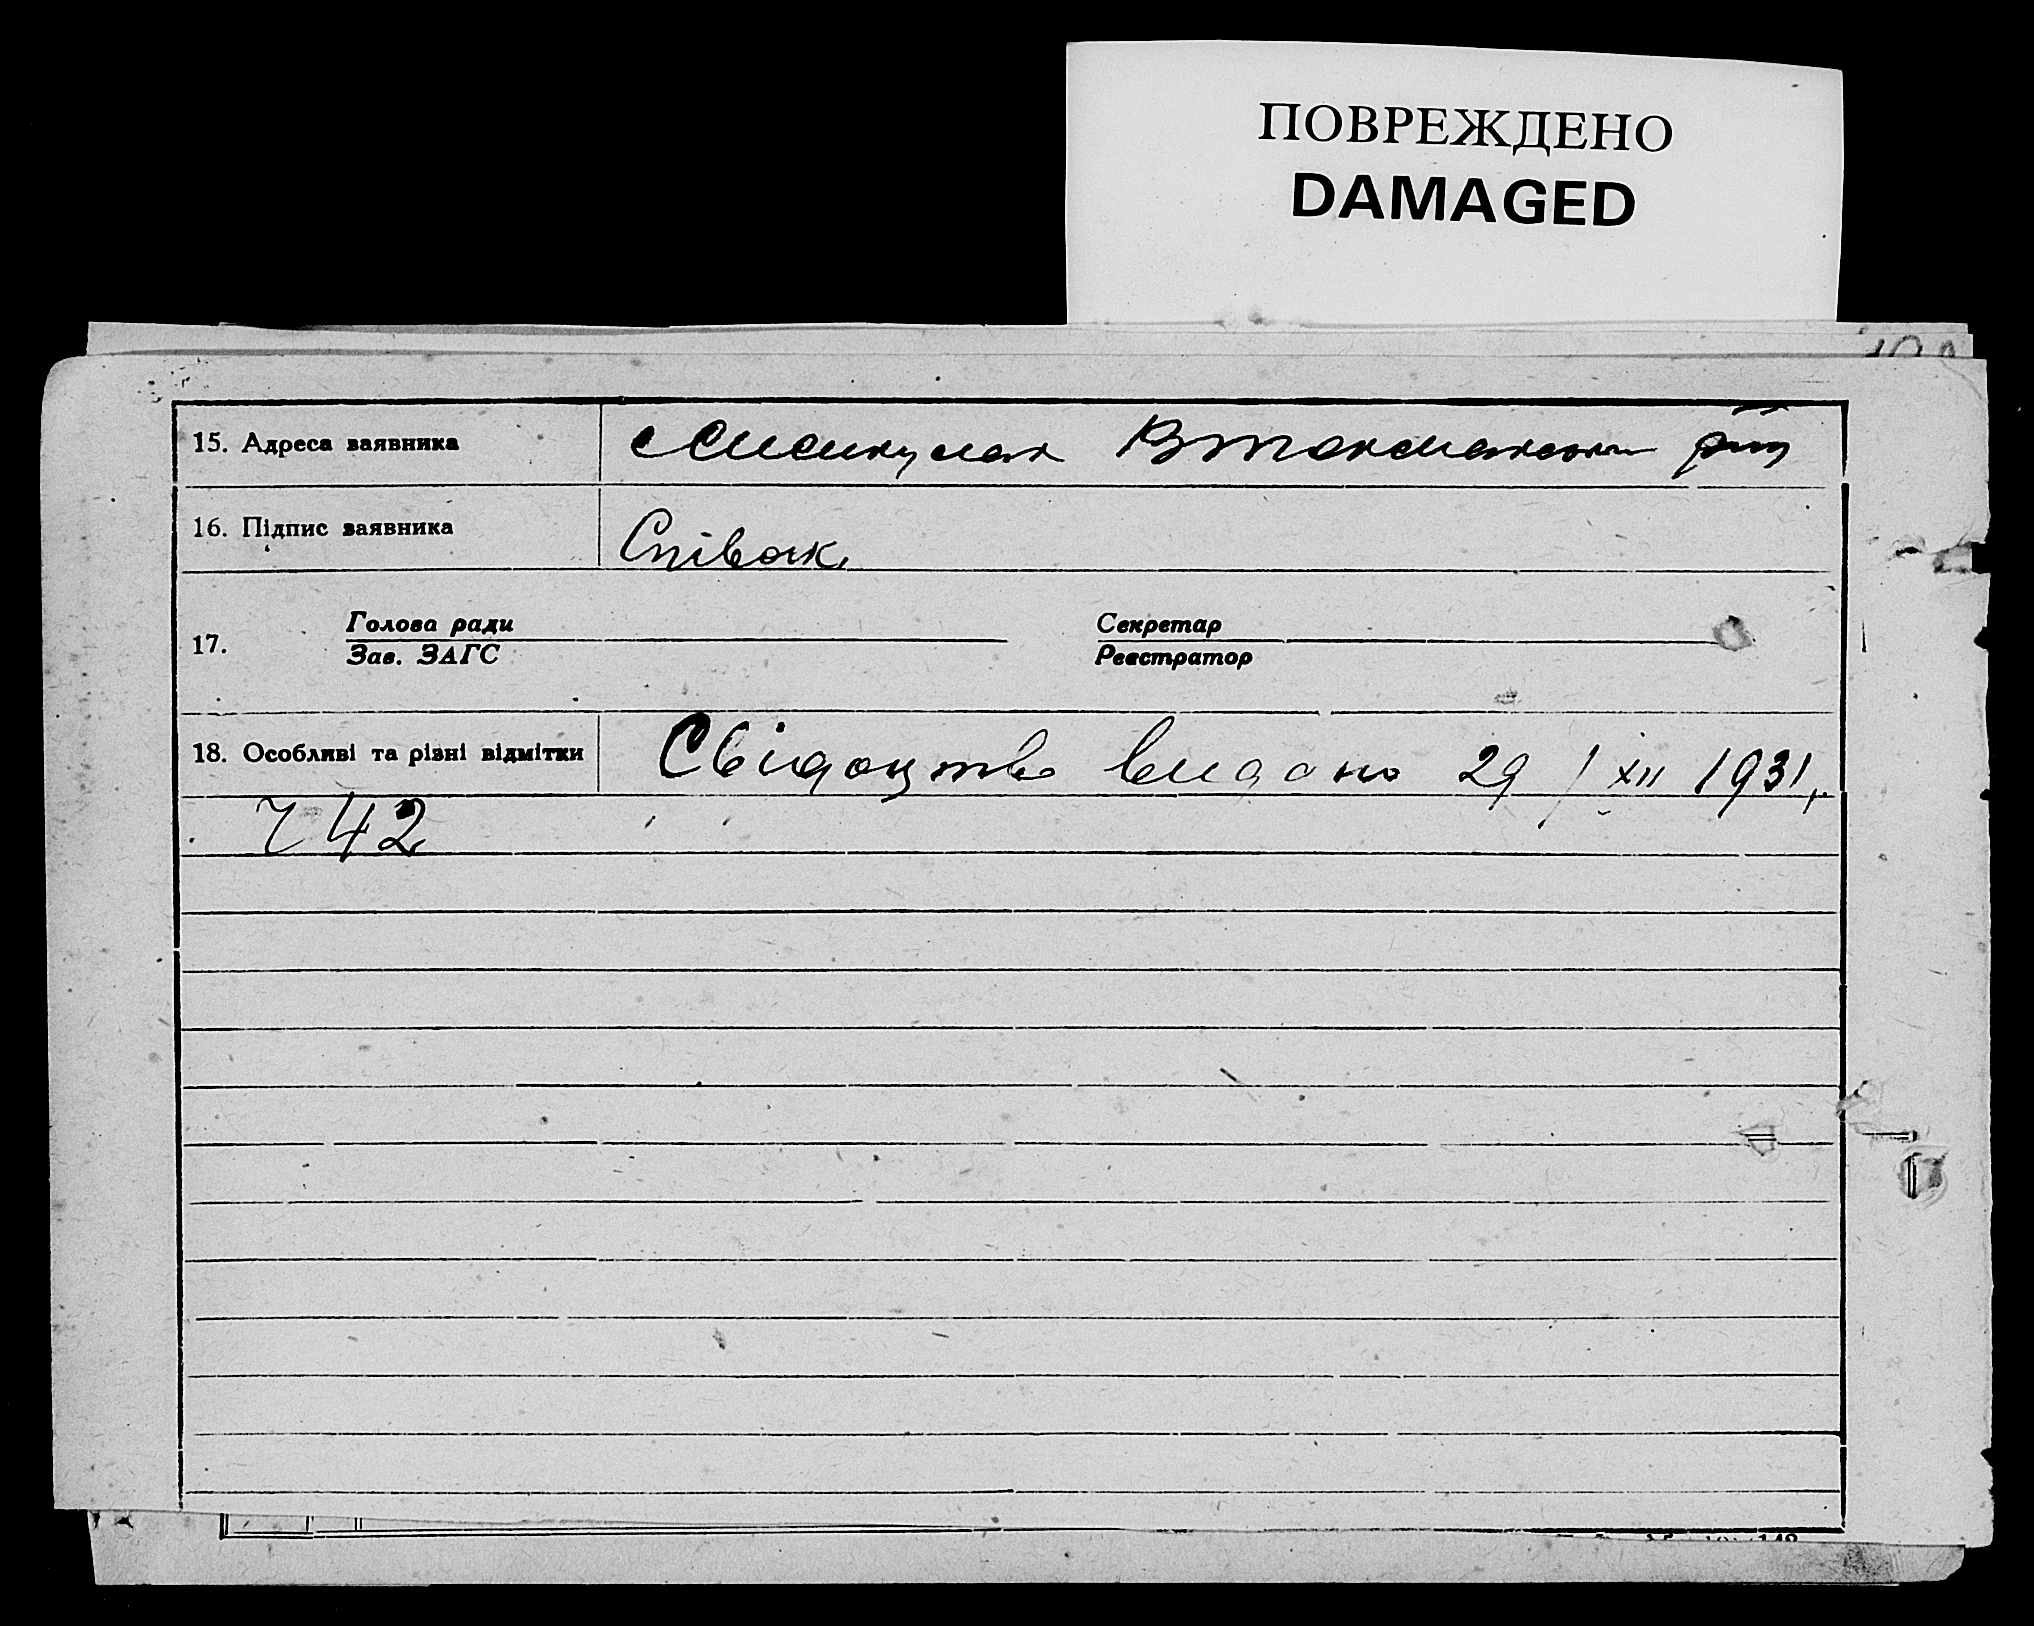 ПОВРЕЖДЕНО
DAMAGED
15. Адреса заявника
16. Підпис заявника Співак
17. Голова ради Секретар
Зав. ЗАГС Реєстратор
18. Особливі та різні відмітки Свідоцтво видано 29/XII 1931
42